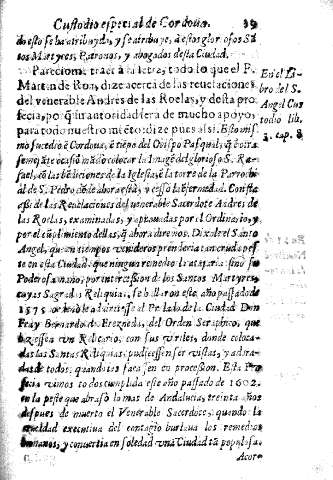 Custodio especial de Cordoua. 39
do esto se ha atribuydo, y se atribuye, à estos gloriosos Sã
tos Martyres, Patronos, y abogados desta Ciudad.
Pareciome traer à la letra, todo lo que el P.
Martin de Roa, dize acerca de las reuelaciones
del venerable Andres de las Roelas, y desta pro
fecia, por q̃ su autoridad era de mucho apoyo,
para todo nuestro intẽto: dize pues assi. Esto mis
mo sucediò ẽ Cordoua, ẽ tiẽpo del Obispo Pasqual, q̃ cõ
semejãte ocasiõ mãdò colocar la Imagẽ del glorioso S. Ra-
fael, cõ las bẽdiciones de la Iglesia, ẽ la torre de la Parrochial
de S. Pedro dõde aora està, y cessò la ẽfermedad. Consta
assi de las Reuelaciones del venerable Sacerdote Andres de
las Roelas, examinadas, y aprouadas por el Ordinario, y
por el cũplimiento dellas, q̃ ahora diremos. Dixole el Santo
Angel, que en tiempos venideros prenderia tan cruda pes
te en esta Ciudad, que ningun remedio la atajaria sino su
Poderosa mano, por intercession de los Santos Martyres,
cuyas Sagradas Reliquias, se hallaron este año passado de
1575 y
Fray Bernardo de Frezneda, del Orden Seraphico, que
hiziesse un Relicario, con sus viriles, donde coloca-
das las Santas Reliquias, pudiessen ser vistas, y adora
das de todos, quando las sacassen en procession. Esta Pro
fecia vimos todos cumplida este año passado de 1602.
en la peste que abrasò lo mas de Andaluzia, treinta años
despues de muerto el Venerable Sacerdote; quando la
crueldad executiua del contagio burlaua los remedios
humanos, y conuertia en soledad una Ciudad tã populosa.
Acor-
En el Li-
bro del S.
Angel Cus
todio lib.
3. cap. 8.